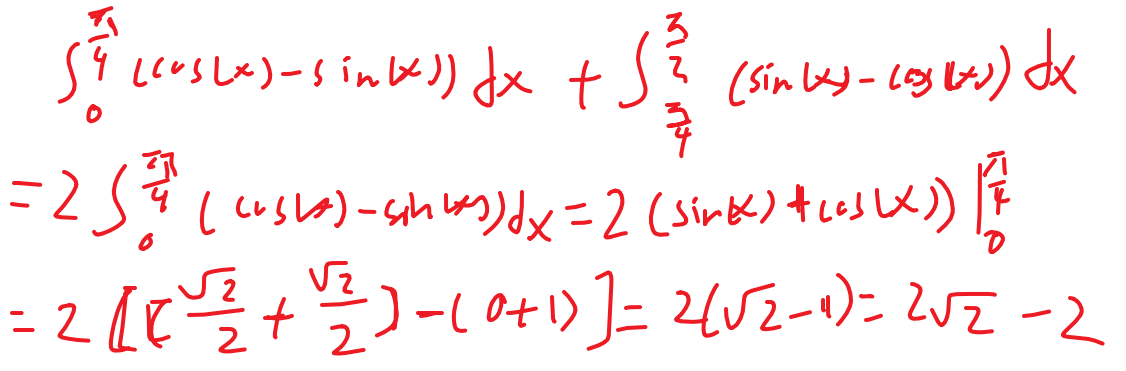 ∫_0^{π/4} (cos(x) - sin(x)) dx + ∫_{π/4}^{π/2} (sin(x) - cos(x)) dx
= 2 ∫_0^{π/4} (cos(x) - sin(x)) dx = 2 (sin(x) + cos(x)) |_0^{π/4}
= 2 [(√2/2 + √2/2) - (0+1)] = 2(√2 - 1) = 2√2 - 2